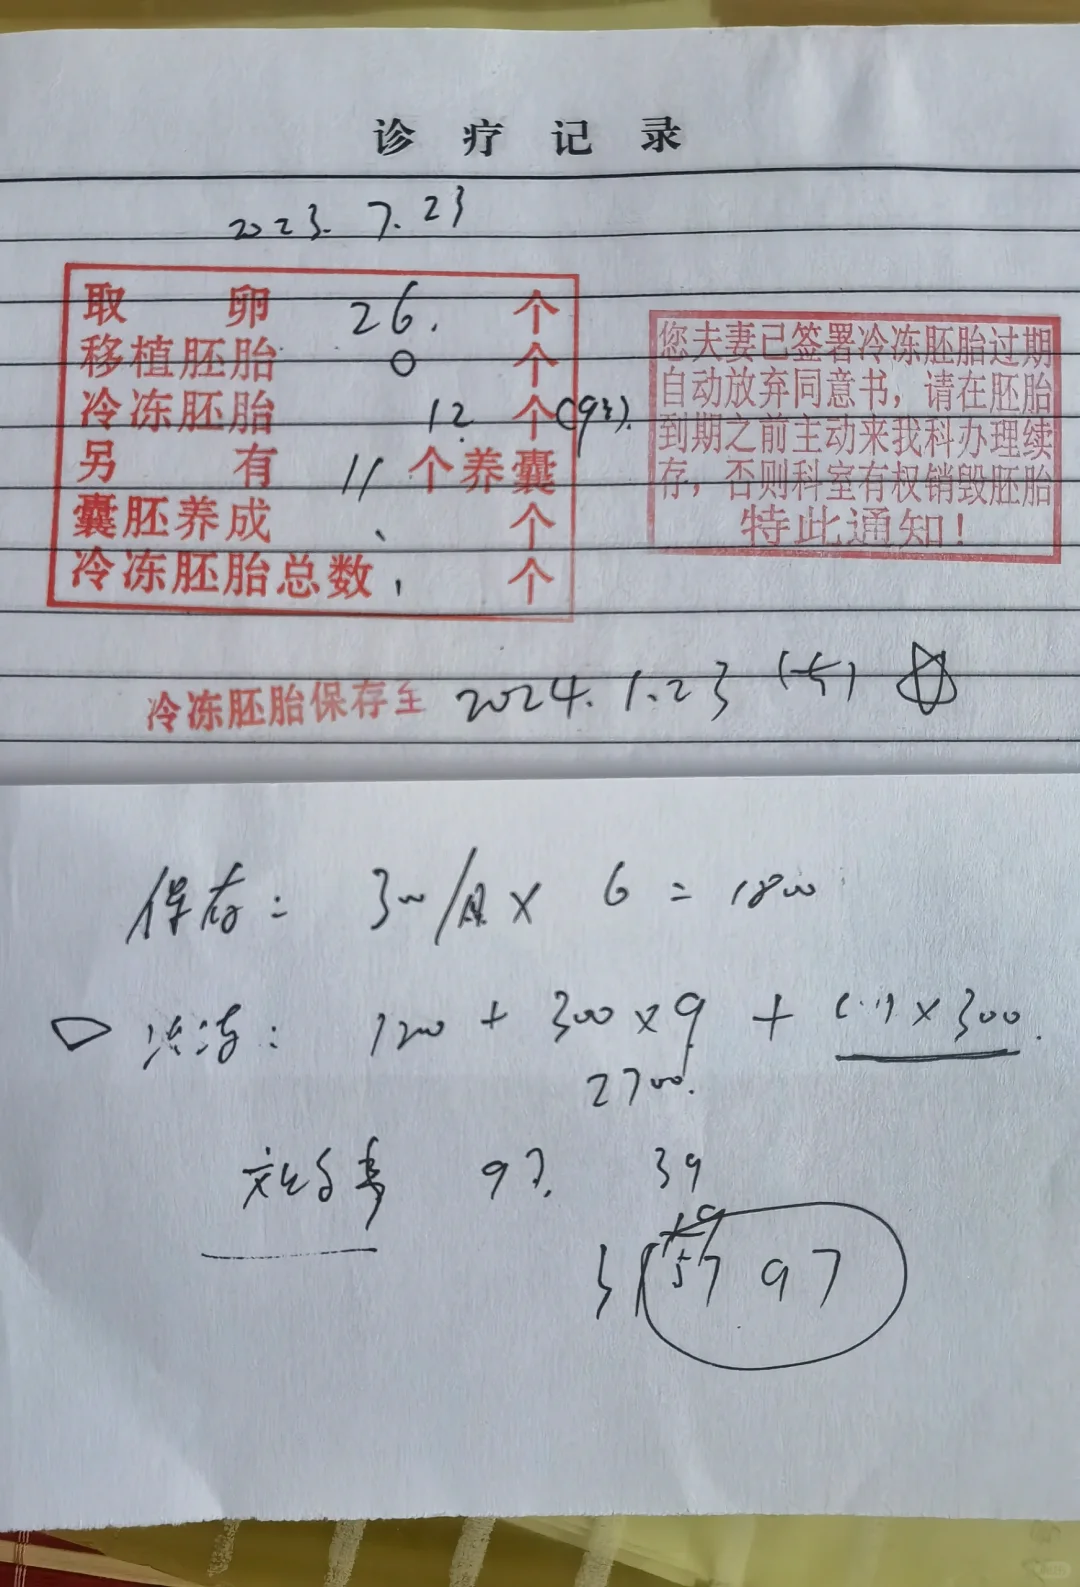 诊疗记录
2023.7.23
取卵 26. 个
移植胚胎 0 个
冷冻胚胎 12. 个(9支).
另有 11 个养囊
囊胚养成 、 个
冷冻胚胎总数 、 个
您夫妻已签署冷冻胚胎过期
自动放弃同意书，请在胚胎
到期之前主动来我科办理续
存，否则科室有权销毁胚胎
特此通知！
冷冻胚胎保存至 2024.1.23
保存: 300/月 × 6 = 1800
冷冻: 1200 + 300×9 + ( )×300.
2700.
97. 39
19
3 57 97